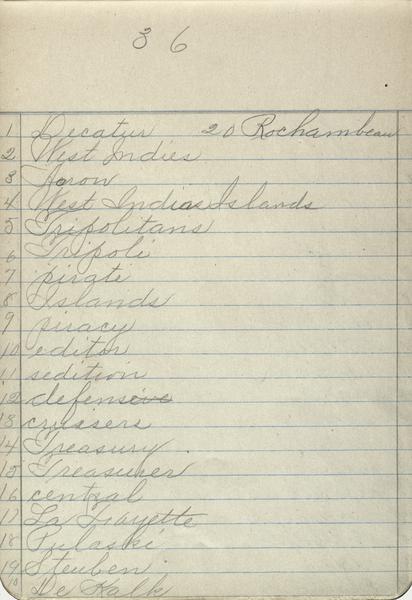 36
1 Decatur 20 Rochambeau
2 West Indies
3
4 West Indias Islands
5 Tripolitans
6 Tripoli
7 pirate
8 Islands
9 piracy
10 editor
11 sedition
12 defensive
13 cruisers
14 Treasury.
15 Treasurer
16 central
17 La Fayette
18 Pulaski
19 Steuben
De Kalk